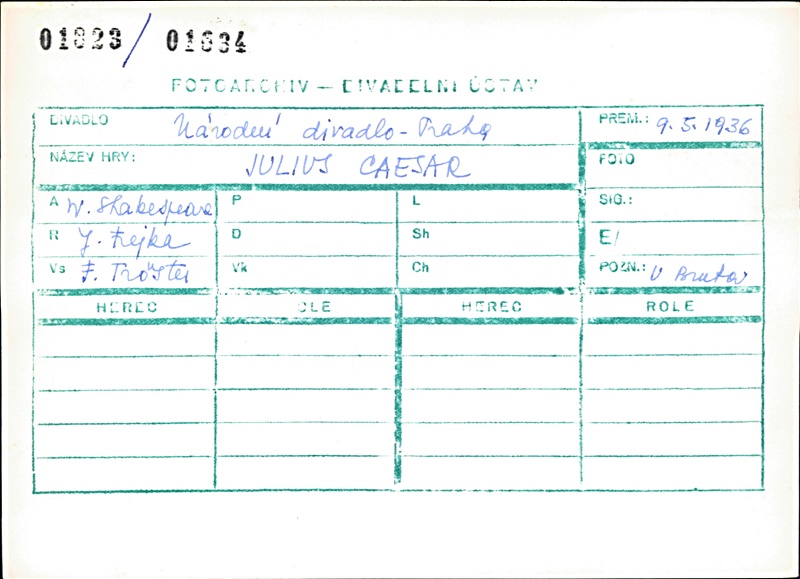 01823 / 01634
FOTOARCHIV — DIVADELNÍ ÚSTAV
DIVADLO Národní divadlo - Praha PREM.: 9.5.1936
NÁZEV HRY: JULIUS CAESAR FOTO
A W. Shakespeare P L SIG.:
R J. Frejka D Sh E/
Vs F. Tröster Vk Ch POZN.: U Bruta
HEREC OLE HEREC ROLE